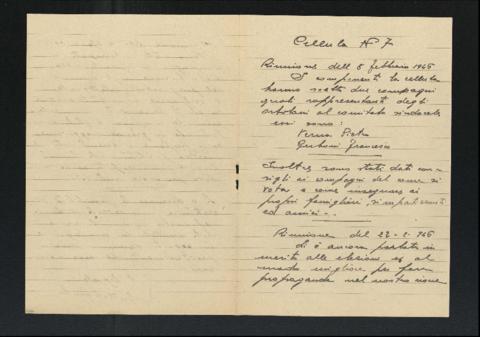 Cellula N° 7
Riunione dell 8 febbraio 1945
I componenti la cellula
hanno scelto due compagni
quali rappresentanti degli
ortolani al comitato sindacale
essi sono:
Verna Pietro
Francesco
Inoltre sono stati dati con-
sigli ai compagni del come si
vota e come insegnare ai
propri famigliari, simpatizzanti
ed amici -.
Riunione del 22-2-945
Si è ancora parlato in
merito alle elezioni e al
modo migliore per fare
propaganda nel nostro rione